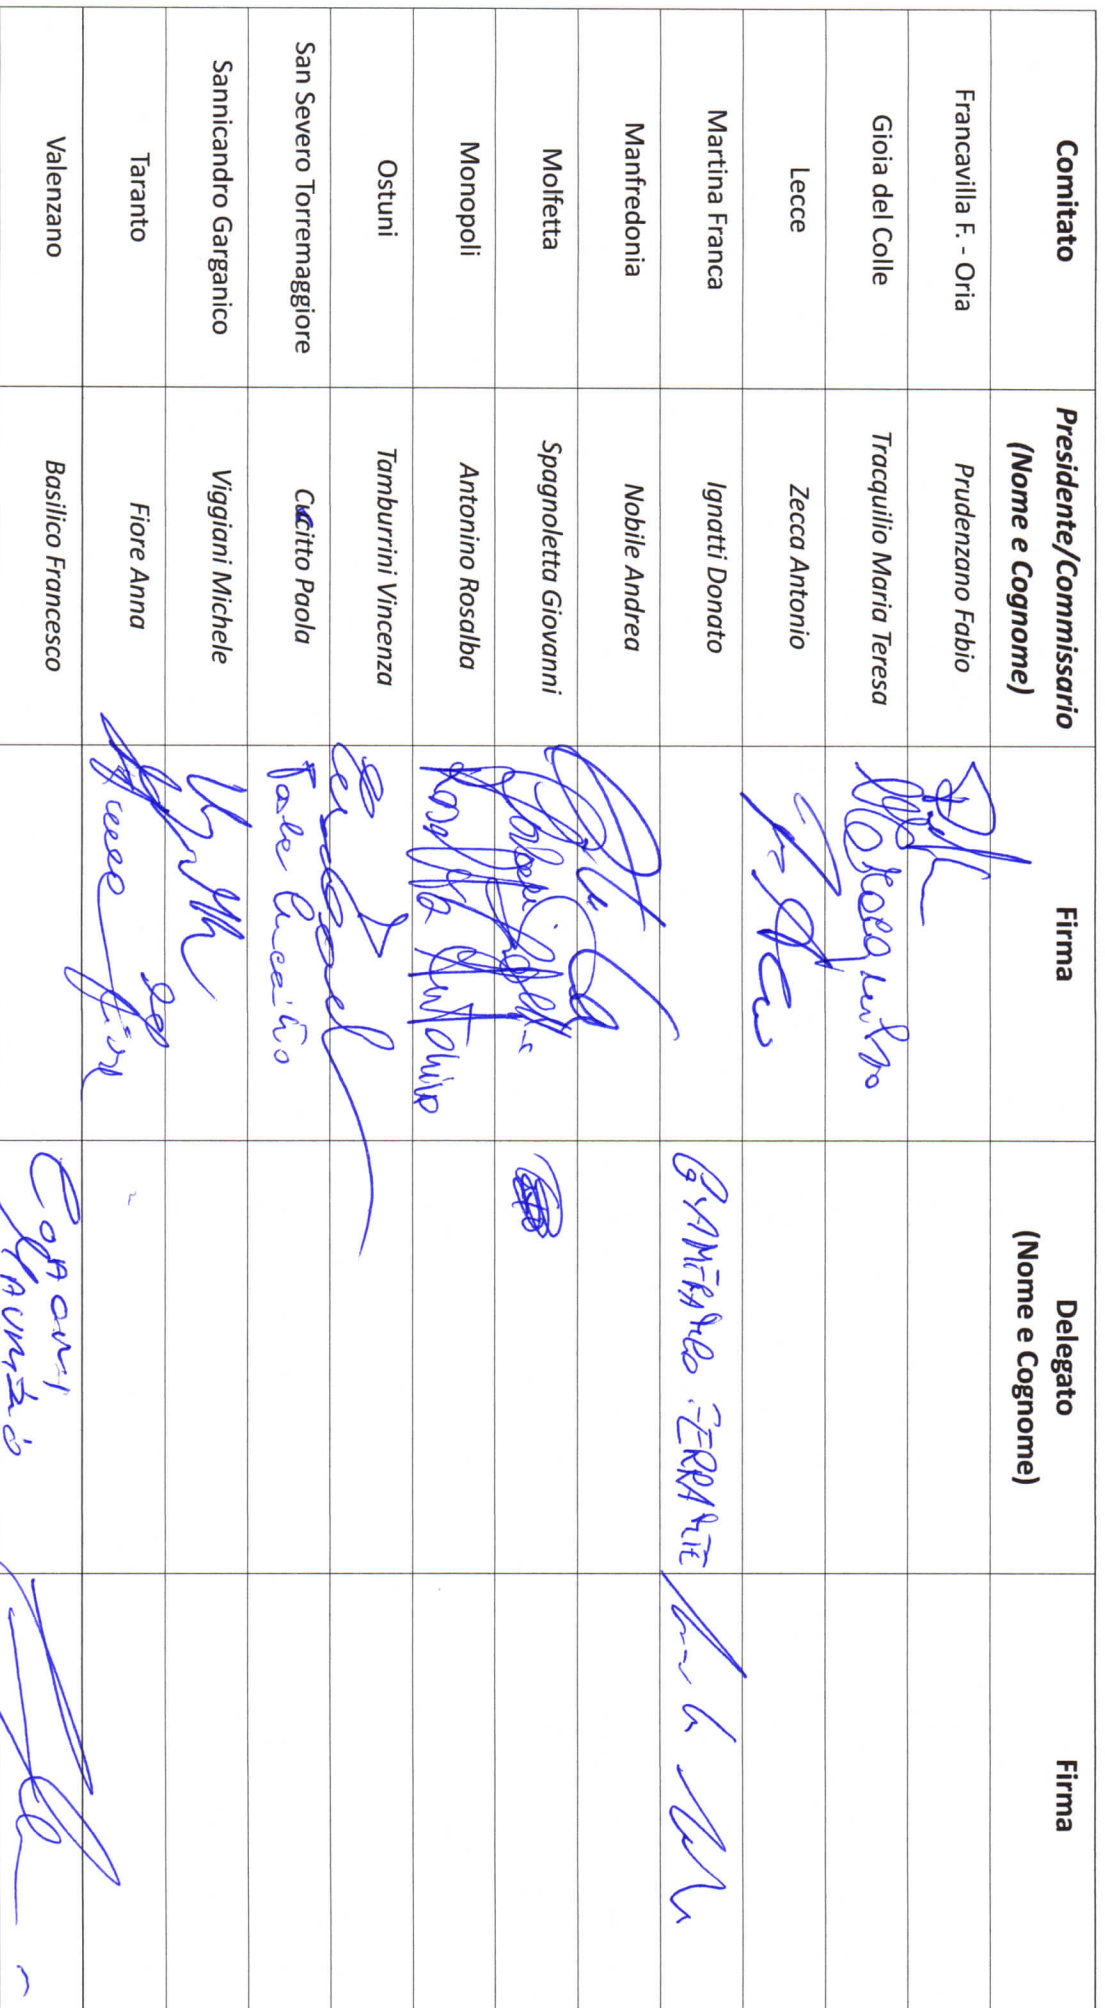 Comitato Presidente/Commissario (Nome e Cognome) Firma Delegato (Nome e Cognome) Firma
Francavilla F. - Oria Prudenzano Fabio
Gioia del Colle Tracquilio Maria Teresa
Lecce Zecca Antonio
Martina Franca Ignatti Donato GIANFRANCO FERRANTE
Manfredonia Nobile Andrea
Molfetta Spagnoletta Giovanni
Monopoli Antonino Rosalba Rosalba Antonino
Ostuni Tamburrini Vincenza
San Severo Torremaggiore Cucitto Paola Paola Cucitto
Sannicandro Garganico Viggiani Michele
Taranto Fiore Anna Fiore
Valenzano Basilico Francesco